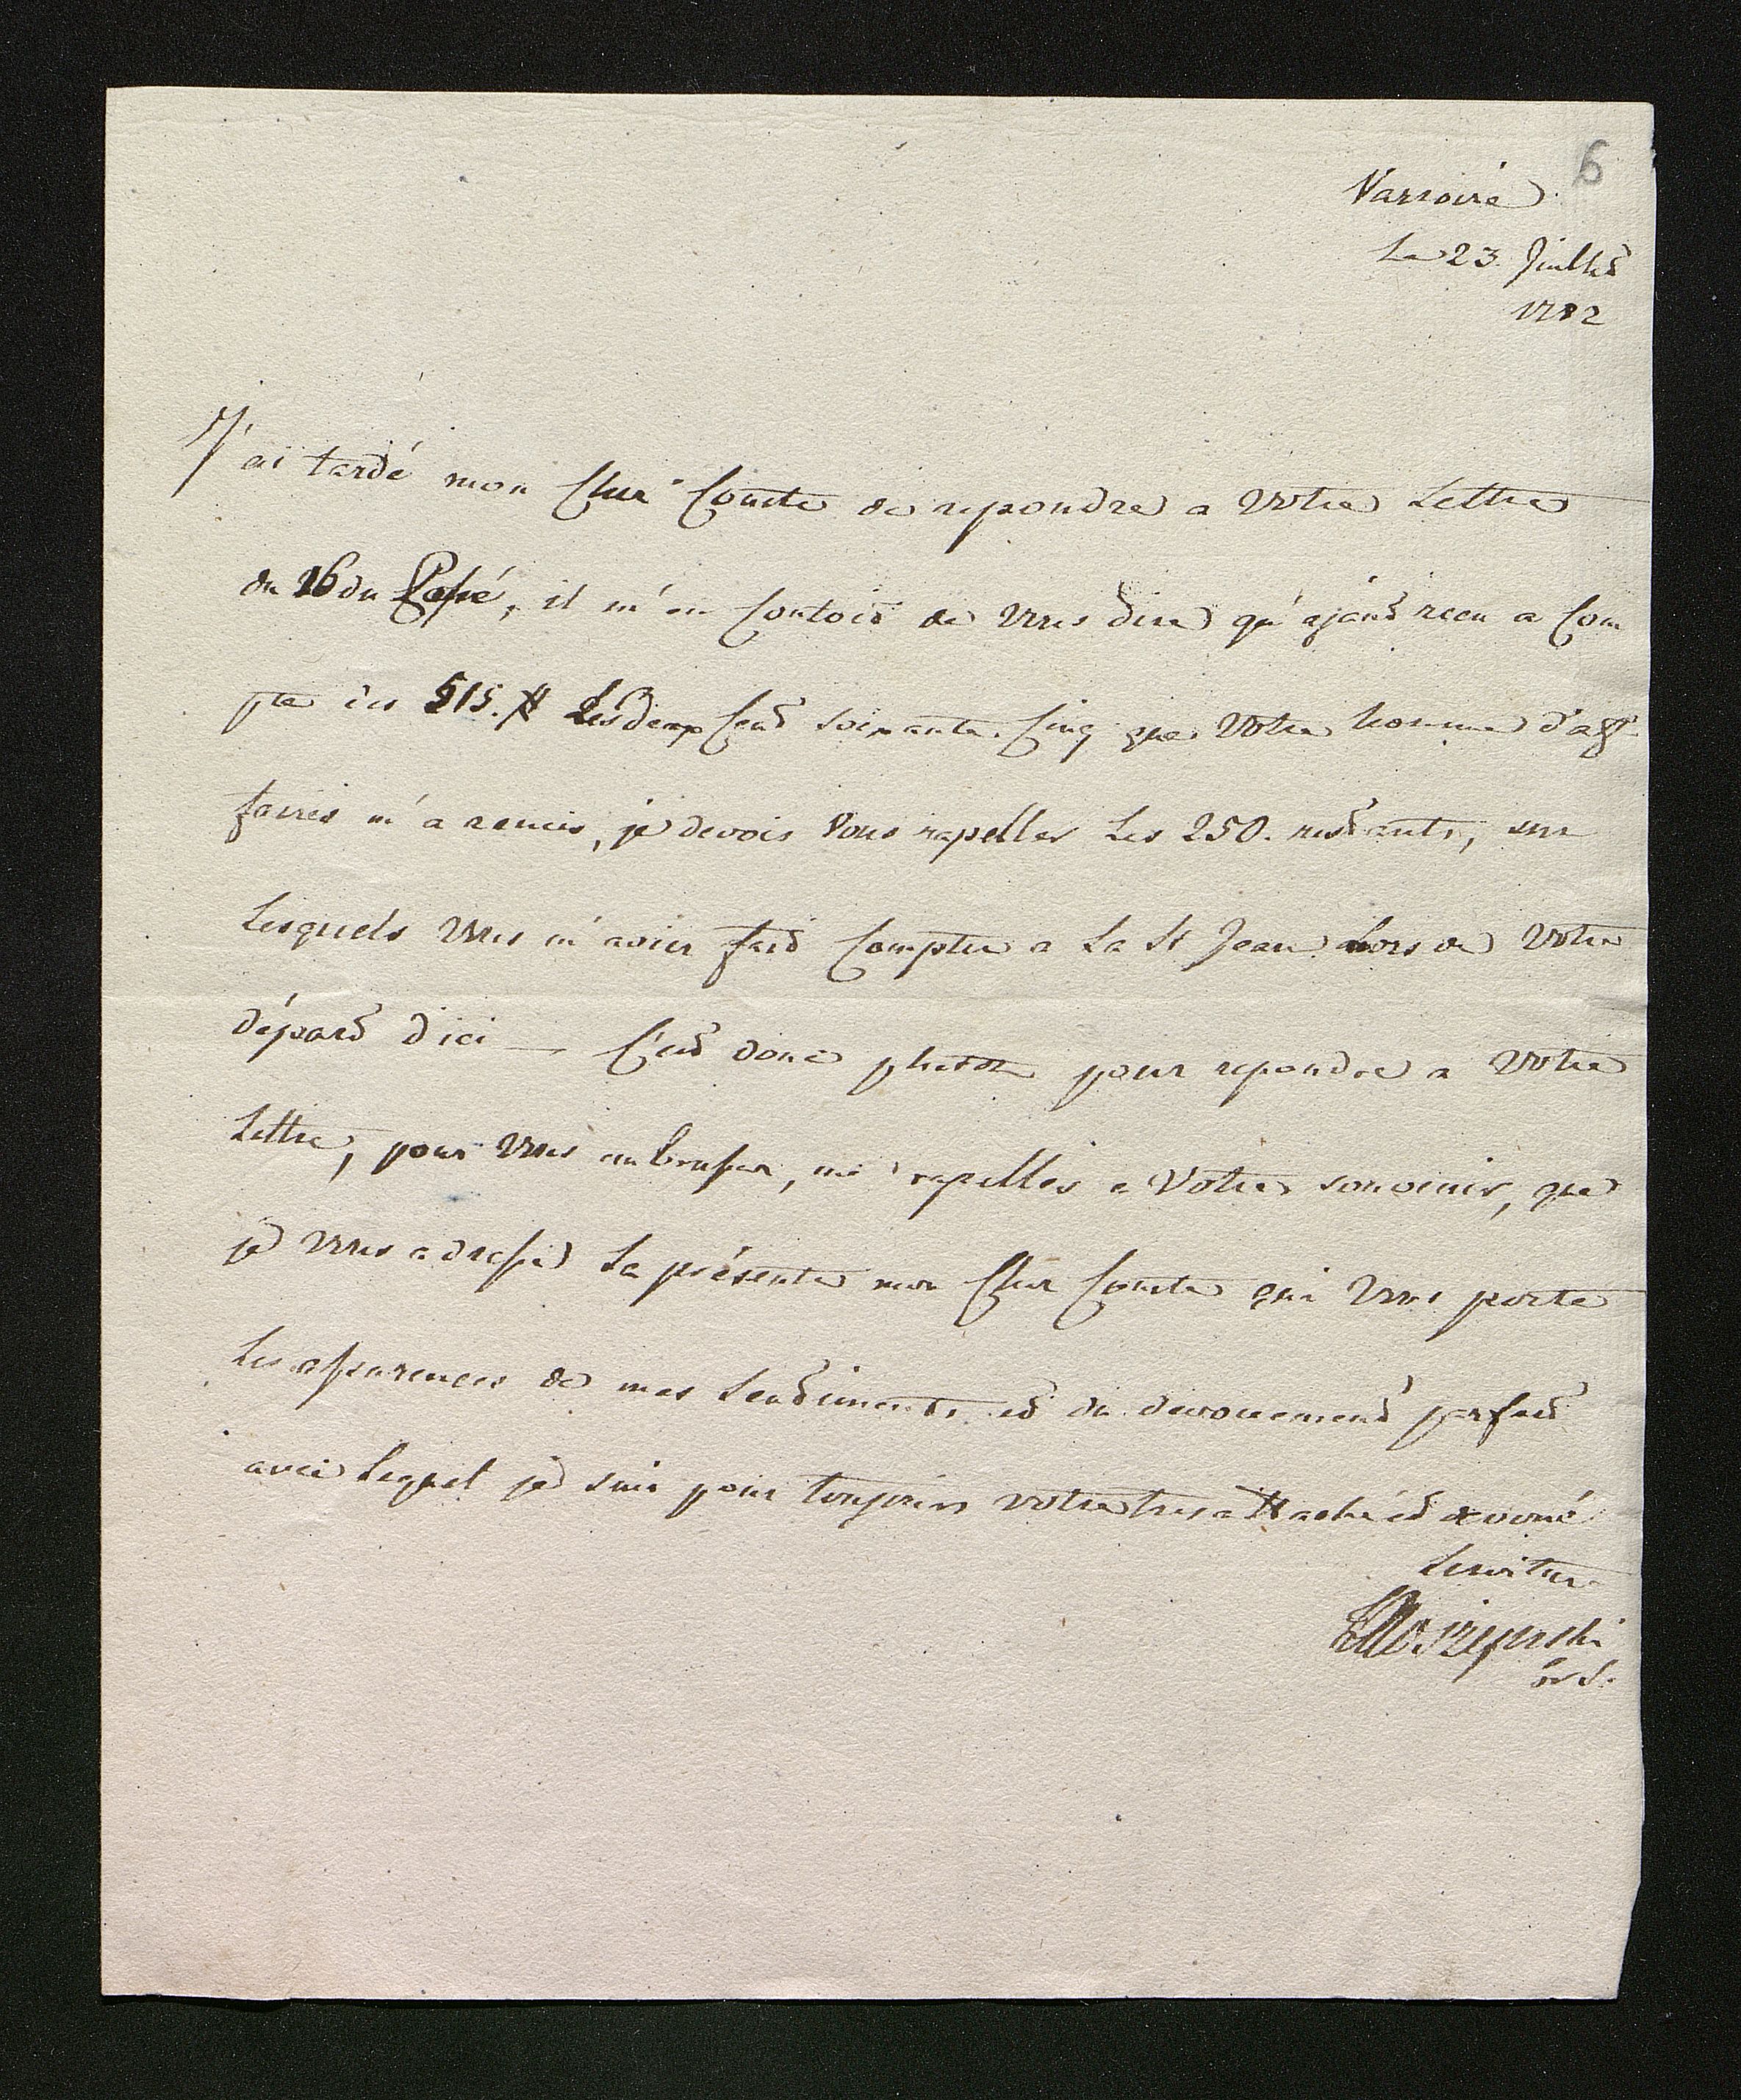 6
Varsovie
Le 23. Juillet
1782
J'ai tardé mon Cher Comte de repondre a Votre Lettre
du 16 du Passé, il m'en Coutoit de Vous dire qu'ajant recu a Com
pte des 515. # Les deux Cent soixante. Cinq que Votre homme d'af
faires m'a remis, je devois Vous rapeller Les 250. restants, sur
Lesquels Vous m'aviez fait Compter a La St Jean Lors de Votre
départ d'ici — C'est donc plutot pour repondre a Votre
Lettre, pour Vous embrasser, me rapeller a Votre souvenir, que
je Vous adresse La présente mon Cher Comte qui Vous porte
Les assurences de mes Sentiments et du devouement parfait
avec Lequel je suis pour toujours votre tres attaché et devoué
Serviteur